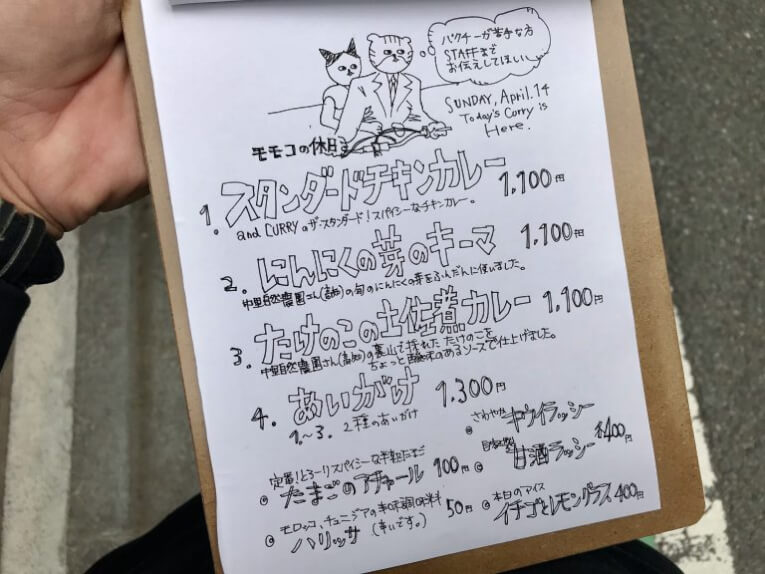 パクチーが苦手な方
STAFFまで
お伝えしてほしい
SUNDAY, April.14
Today's Curry is
Here.
モモコの休日
1. スタンダードチキンカレー 1,100円
and CURRYのザ・スタンダード！スパイシーなチキンカレー。
2. にんにくの芽のキーマ 1,100円
中里自然農園さん(高知)の旬のにんにくの芽をふんだんに使いました。
3. たけのこの土佐煮カレー 1,100円
中里自然農園さん(高知)の裏山で採れたたけのこを
ちょっと酸味のあるソースで仕上げました。
4. あいがけ 1.300円
1.~3. 2種のあいがけ
定番！とろーりスパイシーな半熟たまご
たまごのアチャール 100円
モロッコ、チュニジアの辛味調味料
ハリッサ (辛いです。) 50円
さわやか キウイラッシー
甘酒ラッシー 各400円
本日のアイス
イチゴとレモングラス 400円